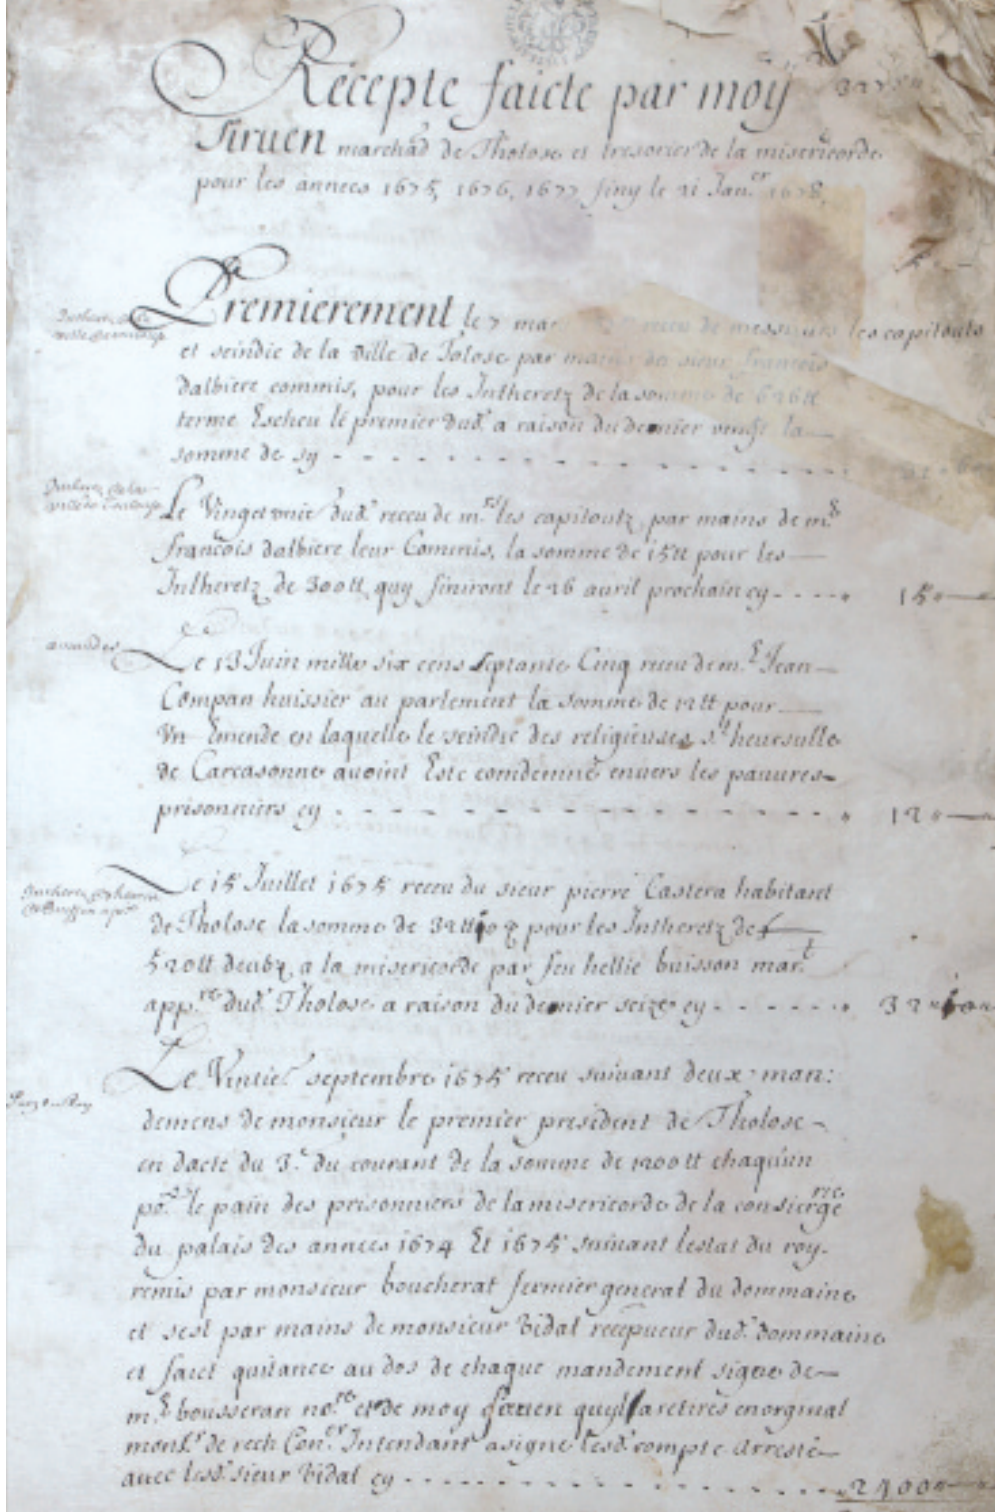 Recepte faicte par moy
Siruen marchād de Tholose et tresorier de la misericorde
pour les années 1675, 1676, 1677 finy le 21 Jan.er 1678,
Premierement le 7 mars receu de messieurs les capitouls
et scindic de la ville de Tolose par mains du sieur françois
dalbiere commis, pour les Intheretz de la somme de 626tt
terme Escheu le premier dud.t a raison du denier vingt la
somme de sy
Le Vingt unie dud.t receu de m.rs les capitoulz par mains de m.e
françois dalbiere leur Commis, la somme de 15tt pour les
Intheretz de 300tt quy finiront le 26 auril prochain cy 15
amandes
Le 13 Juin mille six cens septante Cinq receu de m.e Jean
Compan huissier au parlement la somme de 12tt pour
Vn Emende en laquelle le scindic des religieuses s.t heursulle
de Carcasonne auoint Esté comdemné enuers les pauures
prisonniers cy 12
Le 15 Juillet 1675 receu du sieur pierre Castera habitant
de Tholose la somme de 32tt 10 pour les Intheretz de
520tt deubz a la misericorde par feu hellie buisson mar.t
app.re dud.t Tholose a raison du denier seize cy 32 10
Le Vintie.e septembre 1675 receu suiuant deux man:
demens de monsieur le premier president de Tholose
en dacte du 3.e du courant de la somme de 1200tt chaqu'un
po.r le pain des prisonniers de la misericorde de la consiergerie
du palais des annees 1674 Et 1675 suiuant lestat du roy
remis par monsieur boucherat fermier general du dommaine
et sest par mains de monsieur Vidal recepueur dud.t dommaine
et faict quitance au dos de chaque mandement signe de
m.e bousseran no.re et de moy quyl a retirés en orginal
mons.r de rech Con.er Intendant a signé lesd.t compte Arresté
auec lesd.t sieur Vidal cy 2400